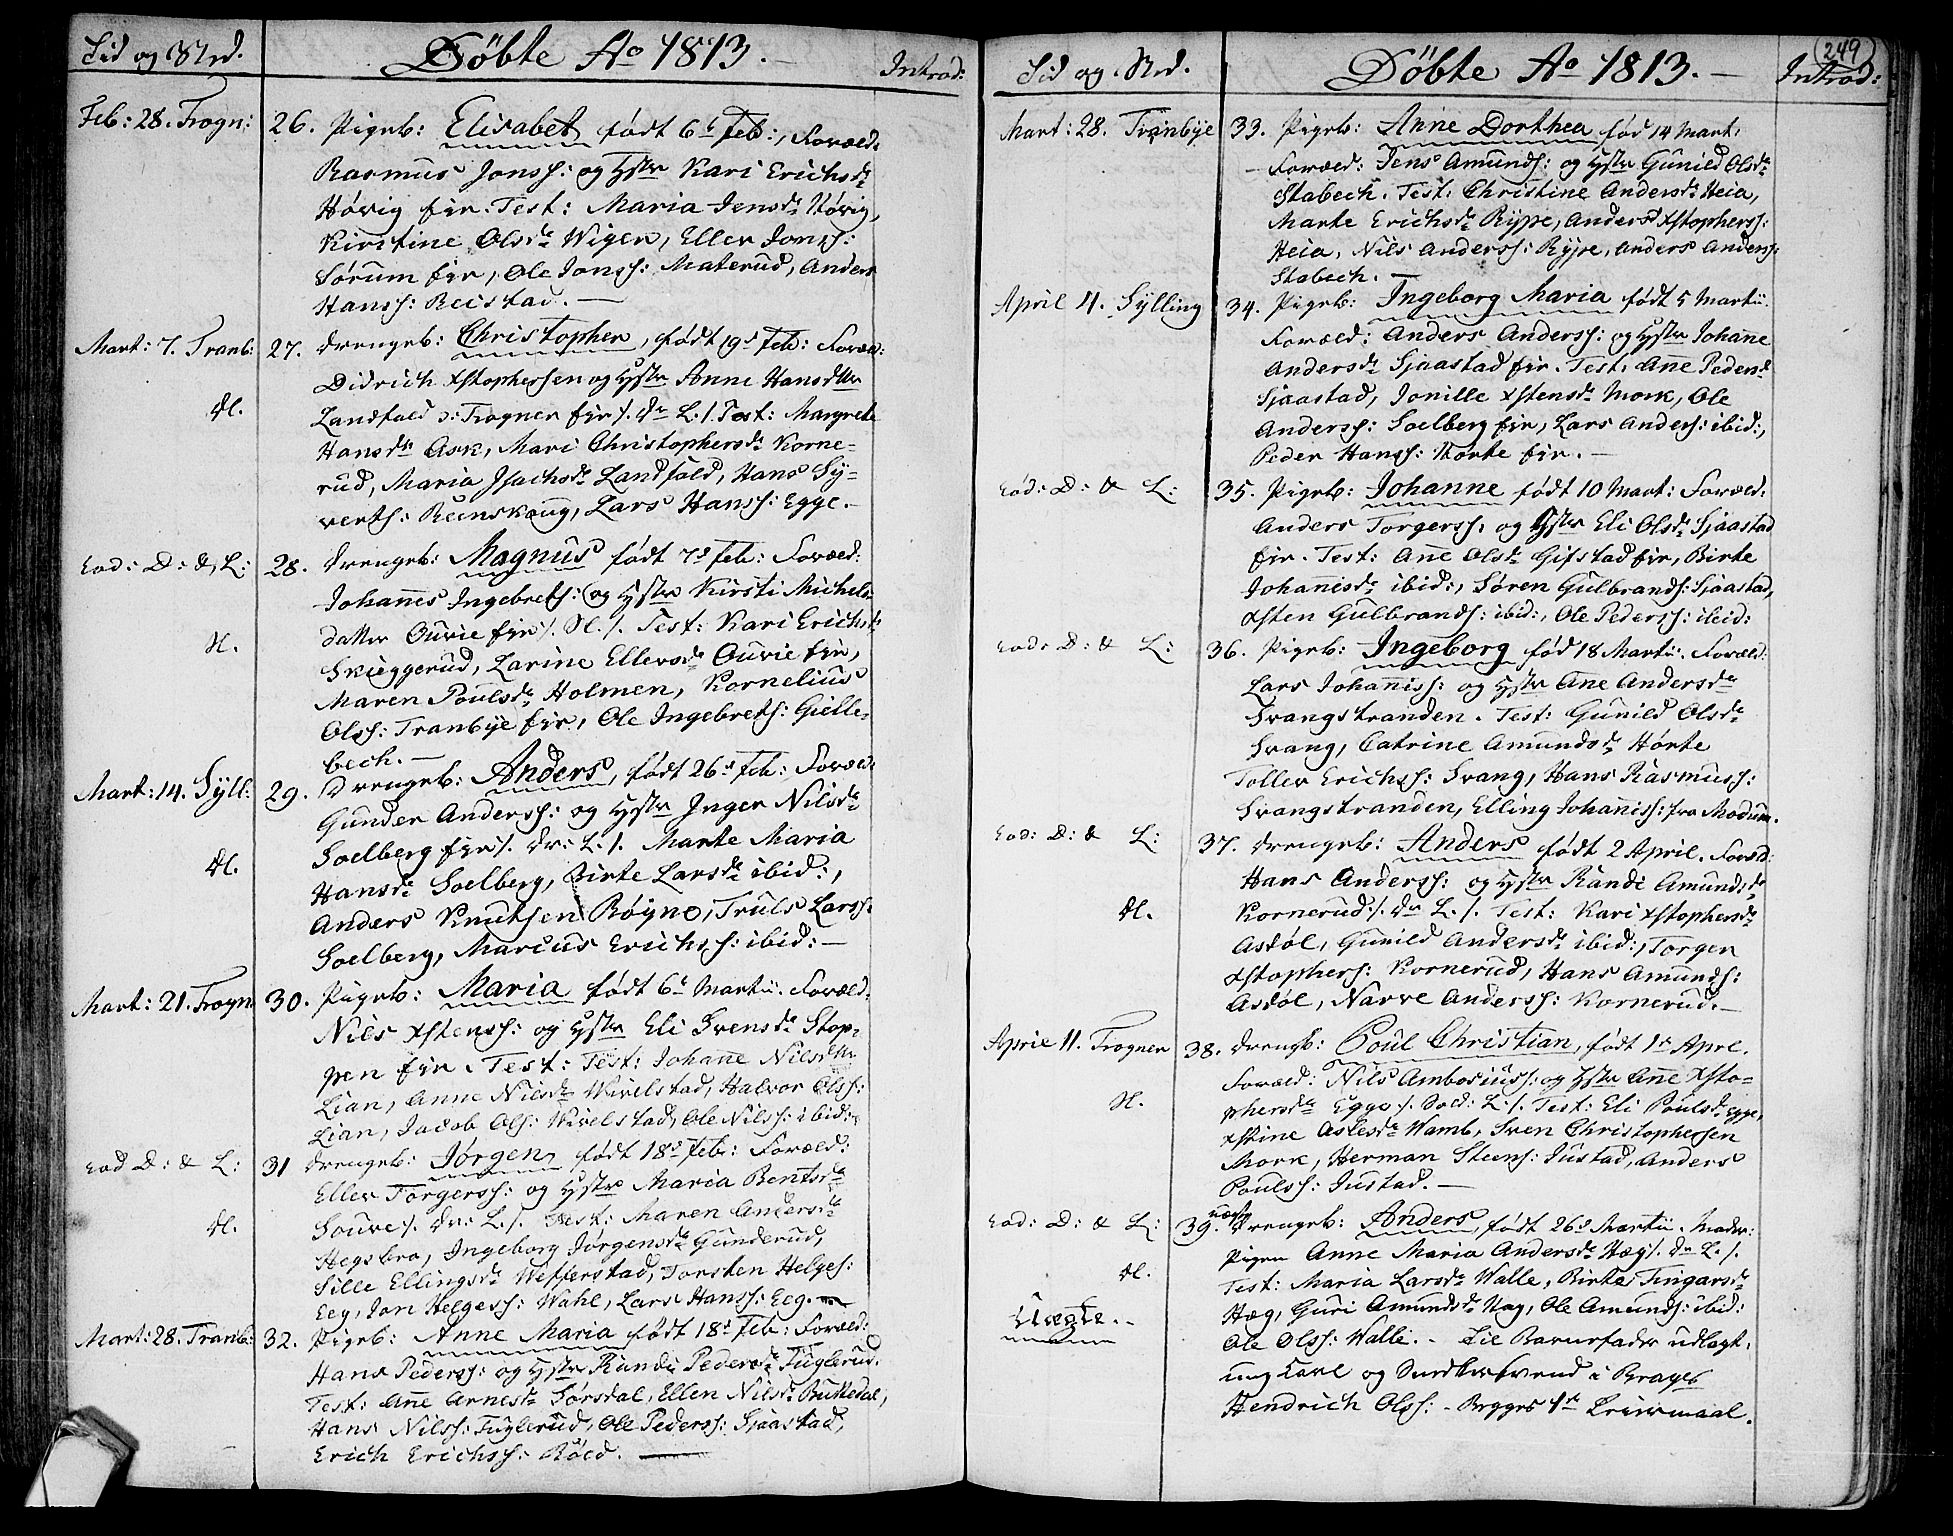 Tid og Sted.
Döbte Ao 1813.
Introd:
Feb: 28. Trogn: 26. Pigeb: Elisabet født 6d Feb:, Foræld:
Rasmus Jonss: og Hstr Kari Erichsdr
Høvig fir. Test: Maria Jensdr Høvig,
Kirstine Olsdr Wiger, Eller Jonss:
Sørum fir, Ole Jonss: Materud, Anders
Hanss: Reistad. —
Mart: 7. Tranb: 27. Drengeb: Christopher, født 19d Feb: Foræld:
Didrich Xstophersen og Hstr Anne Hansdttr
Dl. Landfald o: Trogner fir /. dr L. /. Test: Margrete
Hansdr Ask, Mari Christophersdr Korne-
rud, Maria Isachsdr Landfald, Hans Sy-
verts: Reenskoug, Lars Hanss: Egge. -
Eod: D: & L: 28. Drengeb: Magnus født 7d Feb: Foræld:
Johannes Ingebrets: og Hstr Kirsti Michels
datter Ourie fir /. Sl. /. Test: Kari Erichsdr
Sl. Skieggerud, Larine Ellersdr Ourie fir,
Maren Poulsdr Holmen, Kornelius
Olss: Tranbye fir, Ole Ingebrets: Gielle-
bech. —
Mart: 14. Syll: 29. Drengeb: Anders, født 26d Feb: Foræld:
Gunder Anderss: og Hstr Inger Nilsdr
Dl. Soelberg fir /. Dr: L. /. Marte Maria
Hansdr Soelberg, Birte Larsdr ibid:,
Anders Knutsen Røyne, Truls Larss:
Soelberg, Marcus Erichss: ibid: —
Mart: 21. Trogn 30. Pigeb: Maria født 6d Martii. Foræld:
Nils Xstenss: og Hstr Eli Svensdr Stop-
pen fir. Test: Test: Johanne Nilsdttr
Lian, Anne Nilsdr Wivelstad, Halvor Olss:
Lian, Jacob Ols: Wivelstad, Ole Nilss: ibid:
Eod D: & L: 31 Drengeb: Jørgen, født 18d Feb: Foræld:
Eller Torgerss: og Hstr Maria Bentsdr
Dl. Souve /. Dr: L. /. Test: Maren Andersdr
Hegsbro, Ingeborg Jørgensdr Gunderud,
Sille Ellingsdr Wefferstad, Torsten Helges:
Eeg, Jon Helgess: Wahl, Lars Hanss: Eeg. —
Mart: 28. Tranb: 32. Pigeb: Anne Maria født 18d Feb: Foræld:
Hans Pederss: og Hstr Randi Pedersdr Fuglerud.
Test: Ane Arnesdr Sørsdal, Ellen Nilsdr Bukkedal,
Hans Nilss: Fuglerud, Ole Pederss: Sjaastad,
Erich Erichss: Röed. —
Tid og Sted.
Döbte Ao 1813. —
249
Introd:
Mart: 28. Tranbye 33. Pigeb: Anne Dorthea fød 14 Mart:
Foræld: Jens Amunds: og Hstr Gunild Olsdr
Stabech. Test: Christine Andersdr Heia,
Marte Erichsdr Rype, Anders Xstopherss:
Heia, Nils Anderss: Rype, Anders Anderss:
Stabech. —
April 4. Sylling 34. Pigeb: Ingeborg Maria født 5 Martii.
Foræld: Anders Anderss: og Hstr Johane
Andersdr Sjaastad fir. Test: Ane Pedersdr
Sjaastad, Jonille Xstensdr Mork, Ole
Anderss: Soelberg fir, Lars Anders: ibid:,
Peder Hanss: Horte fir. —
Eod: D: & L: 35. Pigeb: Johanne født 10 Mart: Foræld:
Anders Torgerss: og Hstr Eli Olsdr Sjaastad
fir. Test: Ane Olsdr Gifstad fir, Birte
Johanisdr ibid:, Søren Gulbrands: Sjaastad,
Xsten Gulbrands: ibid:, Ole Pederss: ibid:
Eod: D: & L: 36. Pigeb: Ingeborg fød 18 Martii. Foræld:
Lars Johaniss: og Hstr Ane Andersdr
Svangstranden. Test: Gunild Olsdr
Svang, Catrine Amundsdr Hörte
Toller Erichss: Svang, Hans Rasmuss:
Svangstranden, Elling Johaniss: fra Modum.
Eod: D: & L: 37. Drengeb: Anders født 2 April. Foræld:
Hans Anderss: og Hstr Randi Amundsdr
Dl. Kornerud: /. dr L. /. Test: Kari Xstophersdr
Asdöl, Gunild Andersdr ibid:, Torger
Xstophers: Kornerud, Hans Amunds:
Asdöl, Narve Anderss: Kornerud. —
April 11. Trogner 38. Drengb: Poul Christian, født 1d Apr.
Foræld: Nils Ambrosiuss: og Hstr Ane Xsto-
Sl. phersdr Egge /. Soed: L. /. Test: Eli Poulsdr Egge,
Xstine Aslesdr Wamb, Sven Christophersen
Mork, Herman Steens: Justad, Anders
Poulss: Justad. —
Eod: D: & L: 39. uægte Drengeb: Anders, født 26d Martii. Moder:
Pigen Anne Maria Andersdr Hæg /. dr L. /.
Dl. Test: Maria Larsdr Walle, Birte Tingarsdr
Uægte. - Hæg, Guri Amundsdr Hag, Ole Amunds: ibid:
Ole Olss: Walle. - Til Barnefader udlagt,
ung Karl og Snedkersvend i Brages
Hendrich Olss: - Begges 1ste Leiermaal.